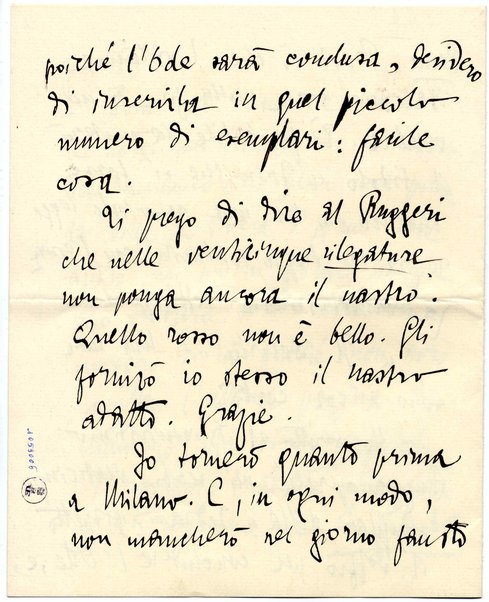 poiché l'Ode sarà conclusa, desidero
di inserirla in quel piccolo
numero di esemplari: facile
cosa.
Ti prego di dire al Ruggeri
che nelle venticinque rilegature
non ponga ancora il nastro.
Quello rosso non è bello. Gli
fornirò io stesso il nastro
adatto. Grazie.
Io tornerò quanto prima
a Milano. E, in ogni modo,
non mancherò nel giorno fausto